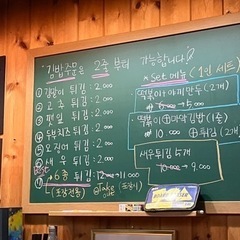 "김밥주문은 2줄 부터 가능합니다"
① 김말이 튀김 : 2,000
② 고추 튀김 : 2,000
③ 깻잎 튀김 : 2,000
④ 튀김 : 2,000
⑤ 오징어 튀김 : 2,000
⑥ 새우 튀김 : 2,000
⑦ 6종 튀김 12,000→11,000
(포장전용)
* Set 메뉴 (1인 세트)
떡볶이 + 야끼만두 (2개)
→ 5,000
떡볶이 ⊕ 마약김밥 (1줄)
10,000 ⊕ 튀김 (2개)
새우튀김 5개
10,000 → 9,000